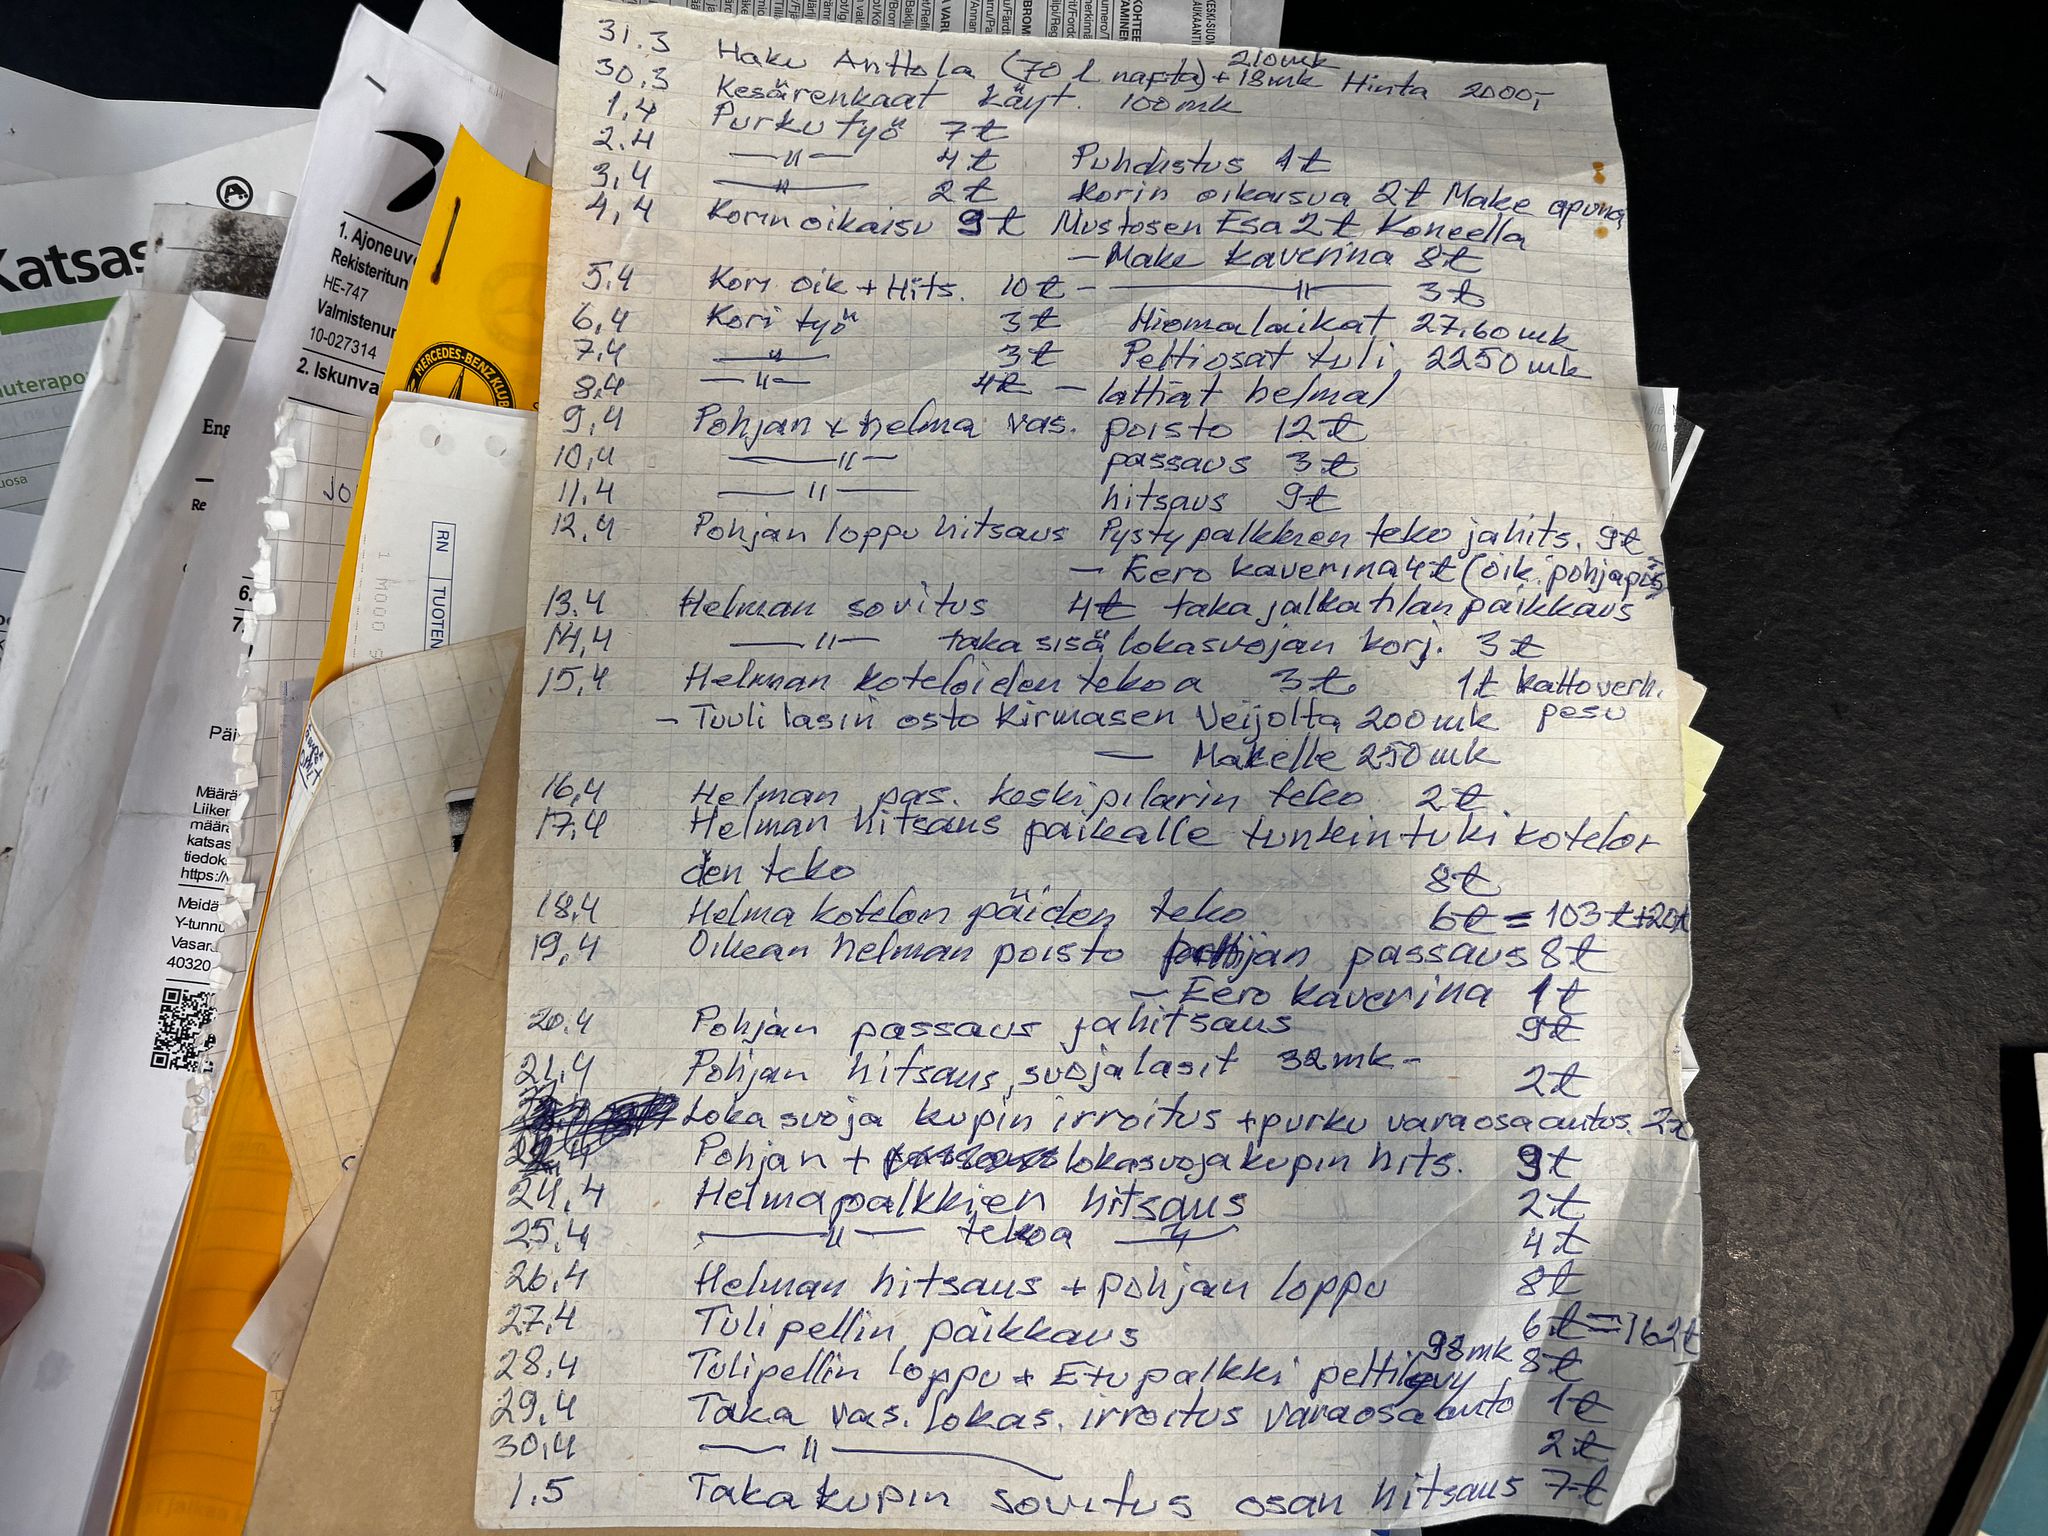 31.3 Haku Anttola (70 l nafta) + 18mk Hinta 2000,-
210mk
30.3 Kesärenkaat käyt. 100mk
1.4 Purku työ 7t
2.4 —"— 4t Puhdistus 1t
3.4 —"— 2t Korin oikaisua 2t Make apuna
4.4 Korin oikaisu 9t Mustosen Esa 2t Koneella
- Make kaverina 8t
5.4 Kori oik + Hits. 10t - —"— 3t
6.4 Kori työ 3t Hiomalaikat 27.60mk
7.4 —"— 3t Peltiosat tuli 2250mk
8.4 —"— 4t - lattiat helmal
9.4 Pohjan + helma vas. poisto 12t
10.4 —"— passaus 3t
11.4 —"— hitsaus 9t
12.4 Pohjan loppu hitsaus Pystypalkkien teko ja hits. 9t
- Eero kaverina 4t (oik. pohja pois)
13.4 Helman sovitus 4t taka jalkatilan paikkaus
14.4 —"— taka sisä lokasuojan korj. 3t
15.4 Helman koteloiden tekoa 3t. 1t kattoverh.
pesu
- Tuuli lasin osto Kirmasen Veijolta 200mk
— Makelle 250mk
16.4 Helman pas. keskipilarin teko 2t
17.4 Helman hitsaus paikalle tunkin tuki koteloi
den teko 8t
18.4 Helma kotelon päiden teko 6t = 103t+20t
19.4 Oikean helman poisto pohjan passaus 8t
- Eero kaverina 1t
20.4 Pohjan passaus ja hitsaus 9t
21.4 Pohjan hitsaus, suojalasit 32mk- 2t
Lokasuoja kupin irroitus + purku varaosaautos. 2t
Pohjan + lokasuojakupin hits. 9t
24.4 Helmapalkkien hitsaus 2t
25.4 —"— tekoa —"— 4t
26.4 Helman hitsaus + pohjan loppu 8t
27.4 Tulipellin paikkaus 6t = 162t
98mk
28.4 Tulipellin loppu + Etupalkki peltilevy 8t
29.4 Taka vas. lokas. irroitus varaosaauto 1t
30.4 —"— 2t
1.5 Takakupin sovitus osan hitsaus 7t
Katsas
uterapo
uosa
Eng
Re
1. Ajoneuv
Rekisteritun
HE-747
Valmistenun
10-027314
2. Iskunva
MERCEDES-BENZ KLUB
RN TUOTEN
6.
7.
Päi
Määrä
Liiken
määrä
katsas
tiedok
https://
Meidä
Y-tunnu
Vasar
40320